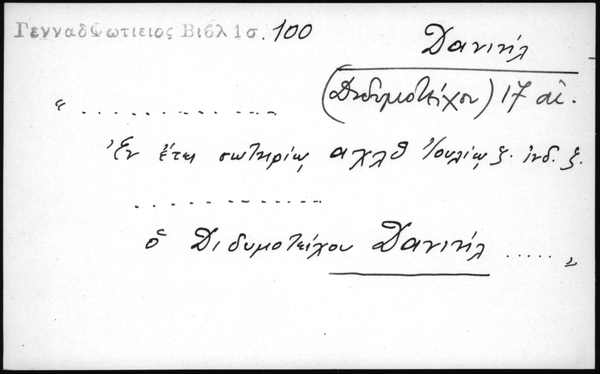 ΓενναδΦωτιειος Βιβλ 1σ. 100
Δανιήλ
(Διδυμοτείχου) 17 αἰ.
“ . . . . . . . . . . . . . .
Ἐν ἔτει σωτηρίῳ αχλθ Ἰουλίῳ ξ. ἰνδ. ξ.
. . . . . . . . . . . . . .
ὁ Διδυμοτείχου Δανιήλ ..... „